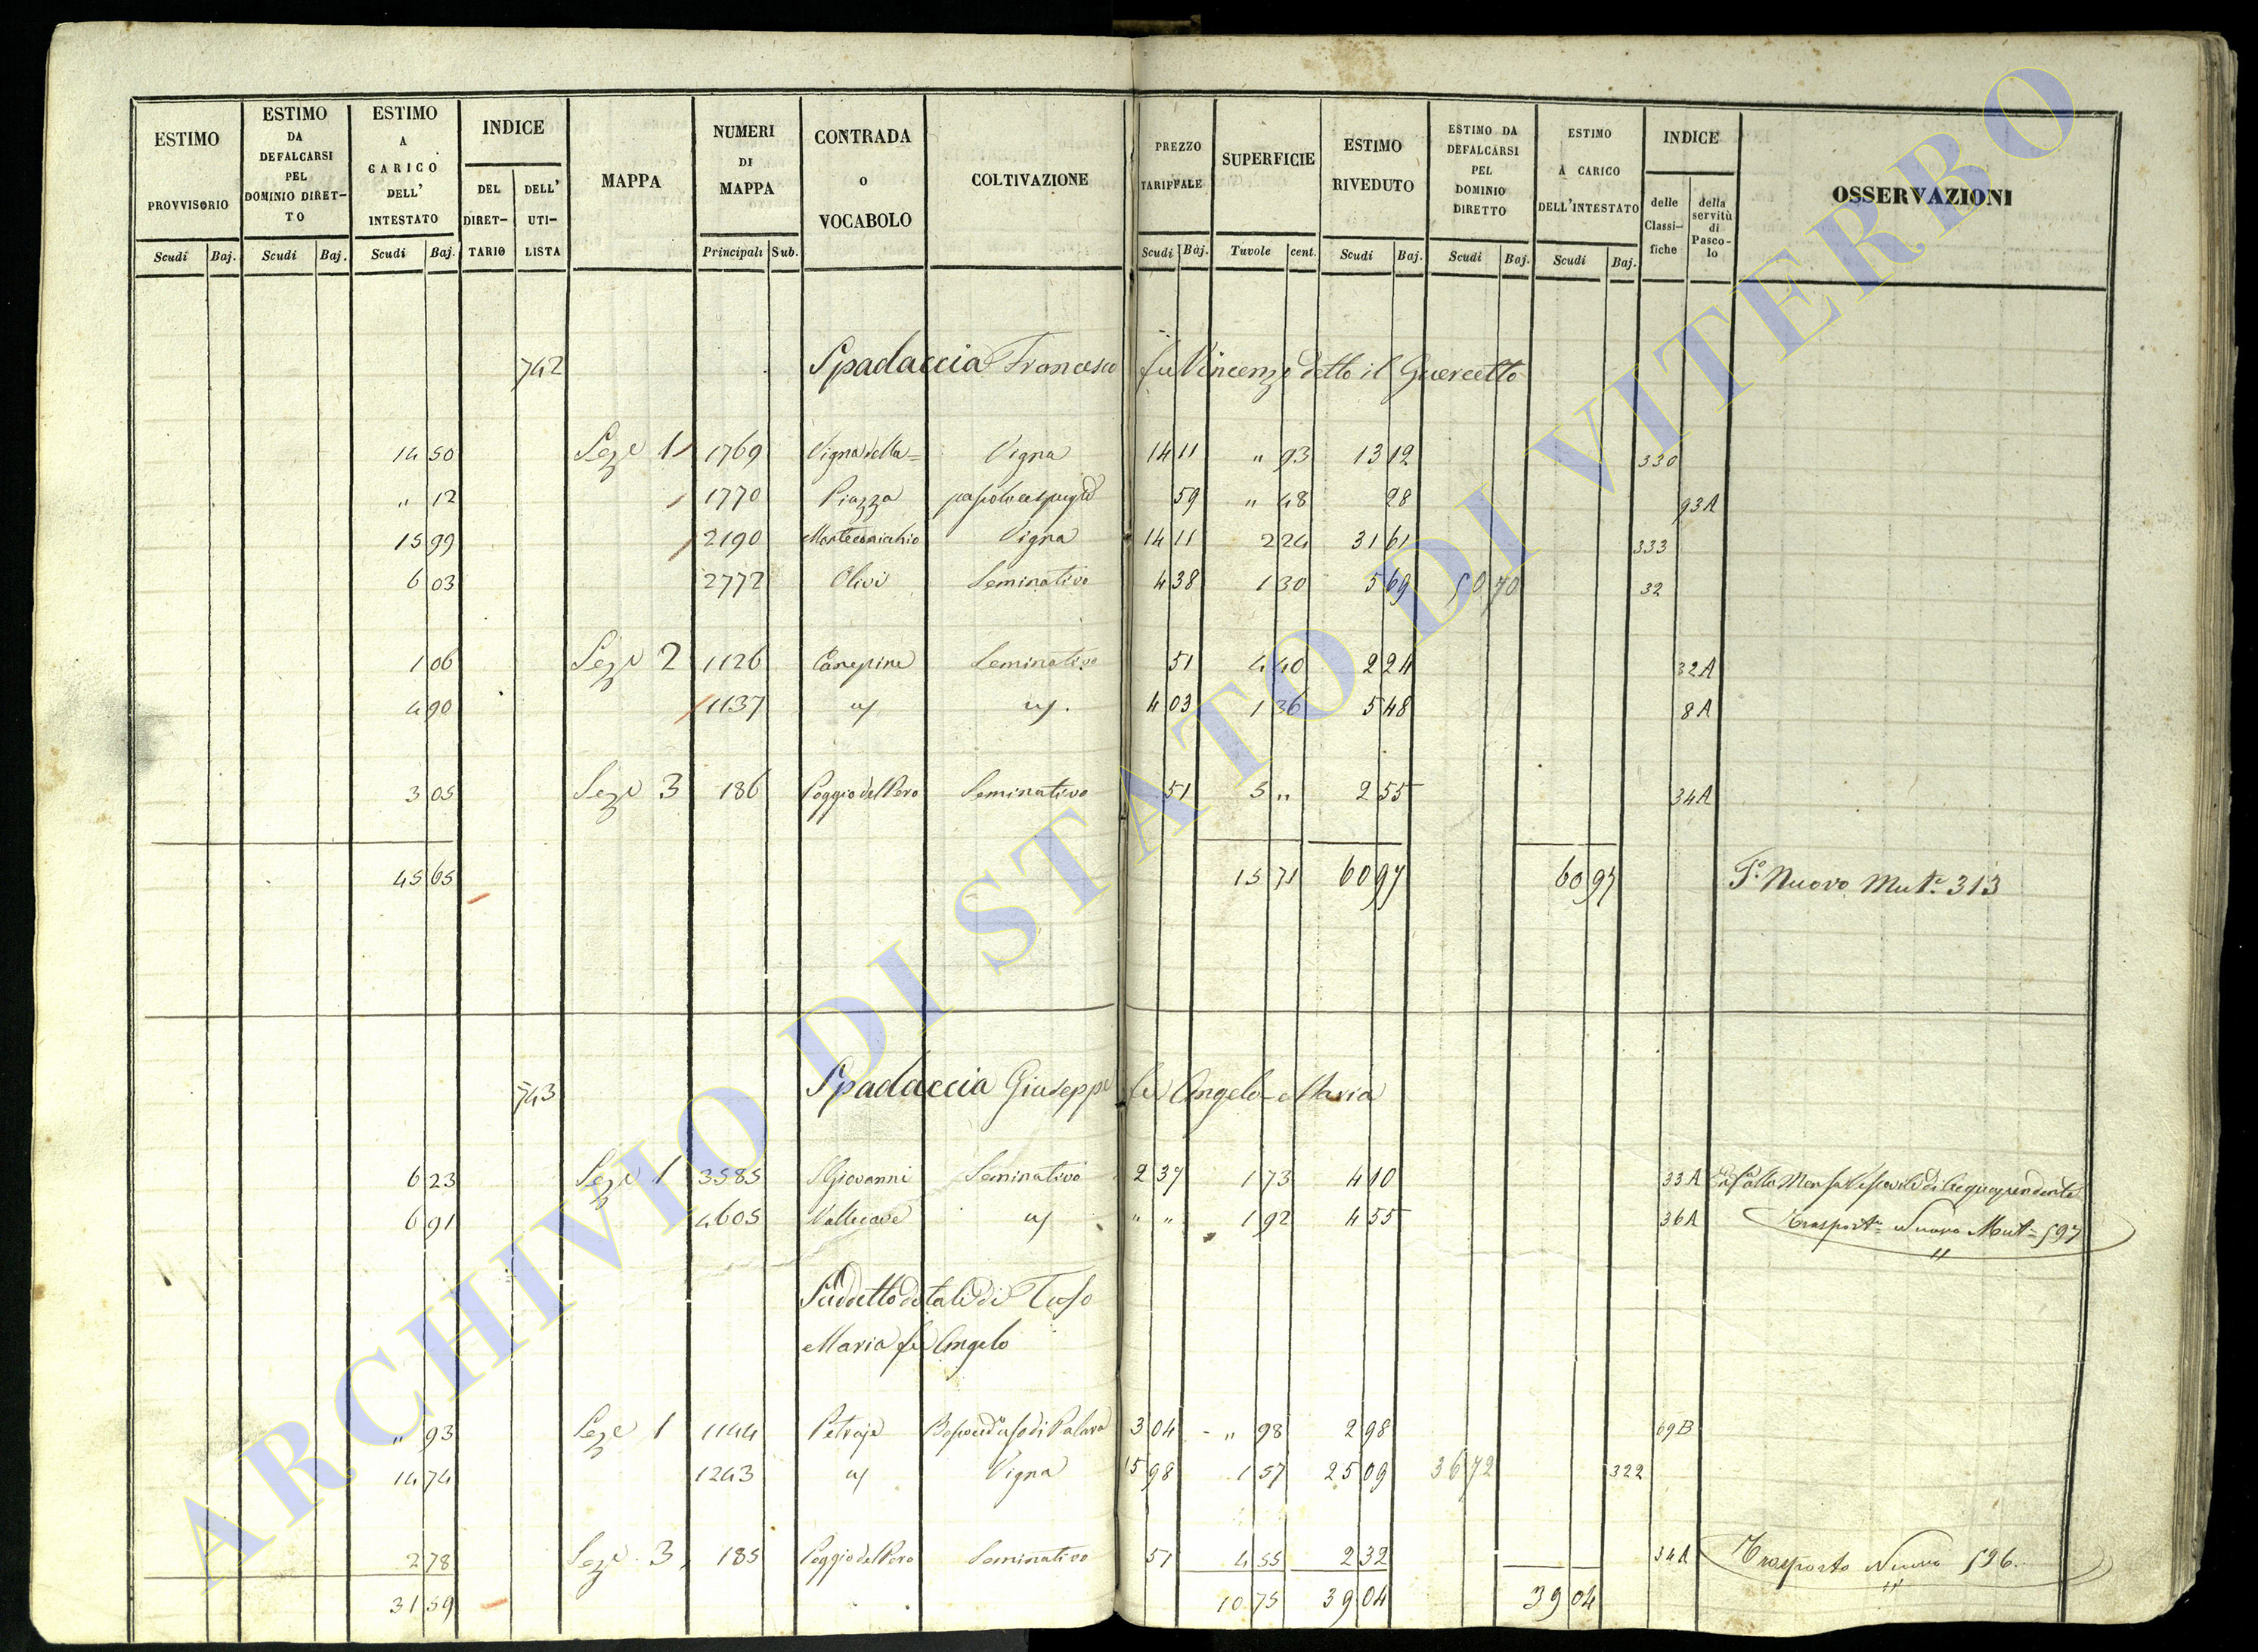 ESTIMO PROVVISORIO Scudi Baj.
ESTIMO DA DEFALCARSI PEL DOMINIO DIRET-TO Scudi Baj.
ESTIMO A CARICO DELL' INTESTATO Scudi Baj.
INDICE DEL DIRET-TARIO DELL' UTI-LISTA
MAPPA
NUMERI DI MAPPA Principali Sub.
CONTRADA o VOCABOLO
COLTIVAZIONE
PREZZO TARIFFALE Scudi Baj.
SUPERFICIE Tavole cent.
ESTIMO RIVEDUTO Scudi Baj.
ESTIMO DA DEFALCARSI PEL DOMINIO DIRETTO Scudi Baj.
ESTIMO A CARICO DELL'INTESTATO Scudi Baj.
INDICE delle Classi-fiche della servitù di Pasco-lo
OSSERVAZIONI
742 Spadaccia Francesco fu Vincenzo detto il Guercetto
14 50 Seze 1 1769 Vigna della= Vigna 14 11 " 93 13 12 330
" 12 1770 Piazza 59 " 48 28 93A
15 99 2190 Vigna 14 11 2 24 31 61 333
6 03 2772 Olivi Seminativo 4 38 1 30 5 69 50 70 32
1 06 Seze 2 1126 Canepine Seminativo 51 4 40 2 24 32A
4 90 1137 4 03 1 36 5 48 8A
3 05 Seze 3 186 Poggio del Pero Seminativo 51 5 " 2 55 34A
45 65 15 71 60 97 60 97 Tº Nuovo Mutª 313
743 Spadaccia Giuseppe fu Angelo Maria
6 23 Seze 1 3585 S Giovanni Seminativo 2 37 1 73 4 10 33A alla Mensa Vescovile di Acquapendente
6 91 4605 Vallecave " " 1 92 4 55 36A Trasportº Nuovo Mutª 597
Suddetto dotali di Tufo
Maria fu Angelo
" 93 Seze 1 1144 Petraje 3 04 " 98 2 98 69B
14 74 1243 Vigna 15 98 1 57 25 09 36 72 322
2 78 Seze 3 185 Poggio del Pero Seminativo 51 4 55 2 32 34A Trasporto Nuovo 596.
31 59 10 75 39 04 39 04
ARCHIVIO DI STATO DI VITERBO